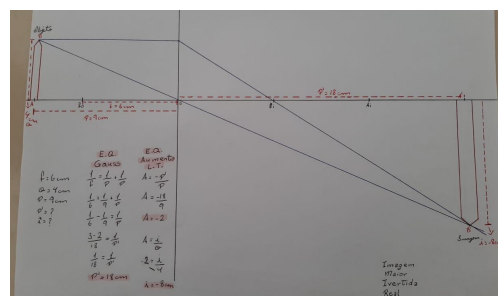 Objeto
f=6cm
P=9cm
P'=18cm
i=-8cm
f=6cm
O=4cm
P=9cm
P'=?
i=?
E.Q
Gauss
1/6 = 1/P + 1/P'
1/6 = 1/9 + 1/P'
1/6 - 1/9 = 1/P'
3-2/18 = 1/P'
1/18 = 1/P'
P'=18cm
E.Q
Aumento
L.T.
A=-P'/P
A=-18/9
A=-2
A=i/O
-2=i/4
i=-8cm
Imagem
Imagem
Maior
Invertida
Real